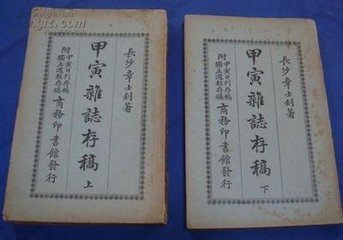 長沙章士釗著
甲寅雜誌存稿 上
附 甲寅日刊存稿
獨立週報存稿
商務印書館發行
長沙章士釗著
甲寅雜誌存稿 下
附 甲寅日刊存稿
獨立週報存稿
商務印書館發行